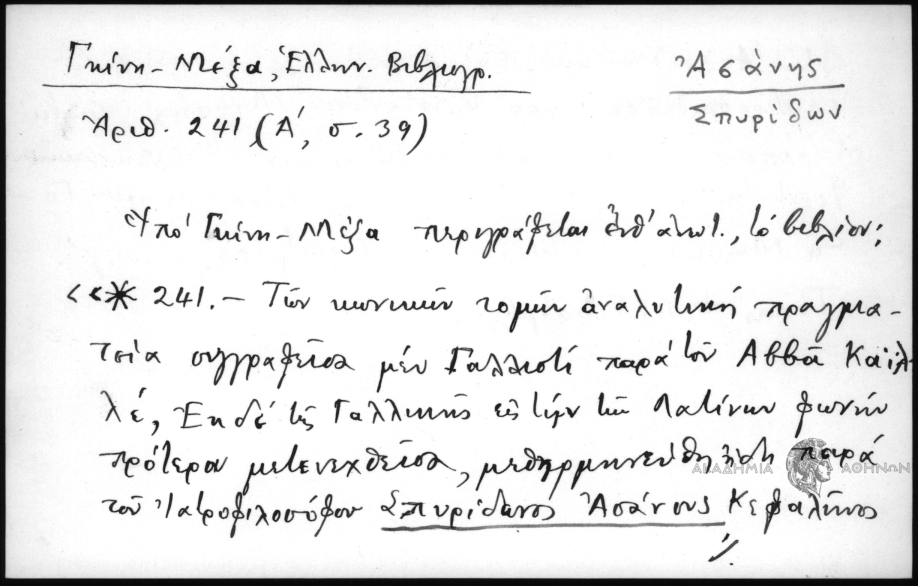 Γκίνη – Μέξα, Ἑλλην. Βιβλιογρ.
Ἀσάνης
Σπυρίδων
Ἀριθ. 241 (Α΄, σ. 39)
Ὑπό Γκίνη – Μέξα περιγράφεται ἐνθ' ἀνωτ., τό βιβλίον:
«✳ 241. – Τῶν κωνικῶν τομῶν ἀναλυτική πραγμα-
τεία συγγραφεῖσα μέν Γαλλιστί παρά τοῦ Ἀββᾶ Καϊλ-
λέ, Ἐκ δέ τῆς Γαλλικῆς εἰς τήν τῶν Λατίνων φωνήν
πρότερον μετενεχθεῖσα, μεθηρμηνεύθη παρά
τοῦ Ἰατροφιλοσόφου Σπυρίδωνος Ἀσάνους Κεφαλῆνος
ΑΚΑΔΗΜΙΑ ΑΘΗΝΩΝ